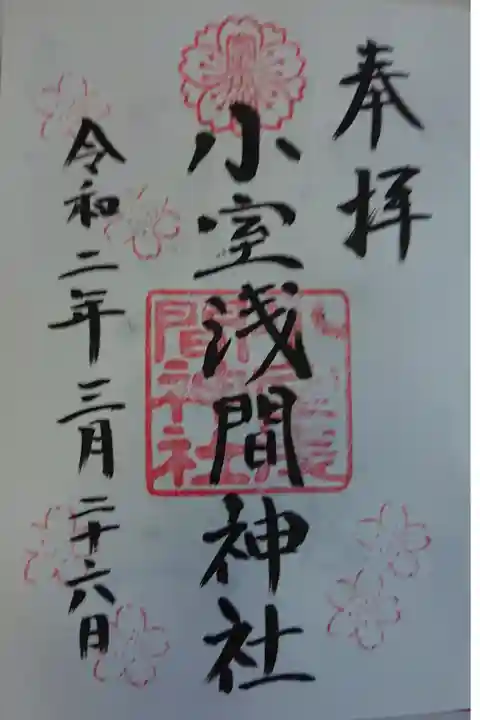 奉拝
小室浅間神社
令和二年三月二十六日